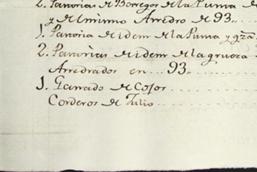 2. Panorias de Borregos de la Puma de
y de Imnimo Arredro de 93
1. Panoria de idem de la Puma y gza
2. Panorias de idem de la grueza
Arredrados en 93
1. Ganado de Cojos
Corderos de Julio